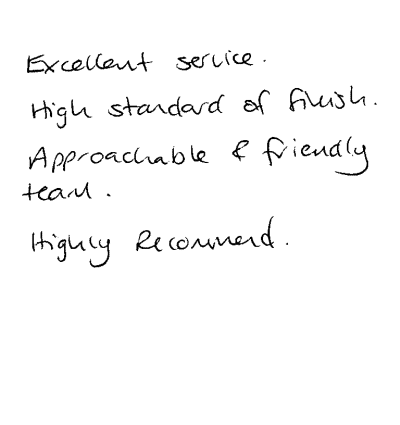 Excellent service.
High standard of finish.
Approachable & friendly
team.
Highly Recommend.